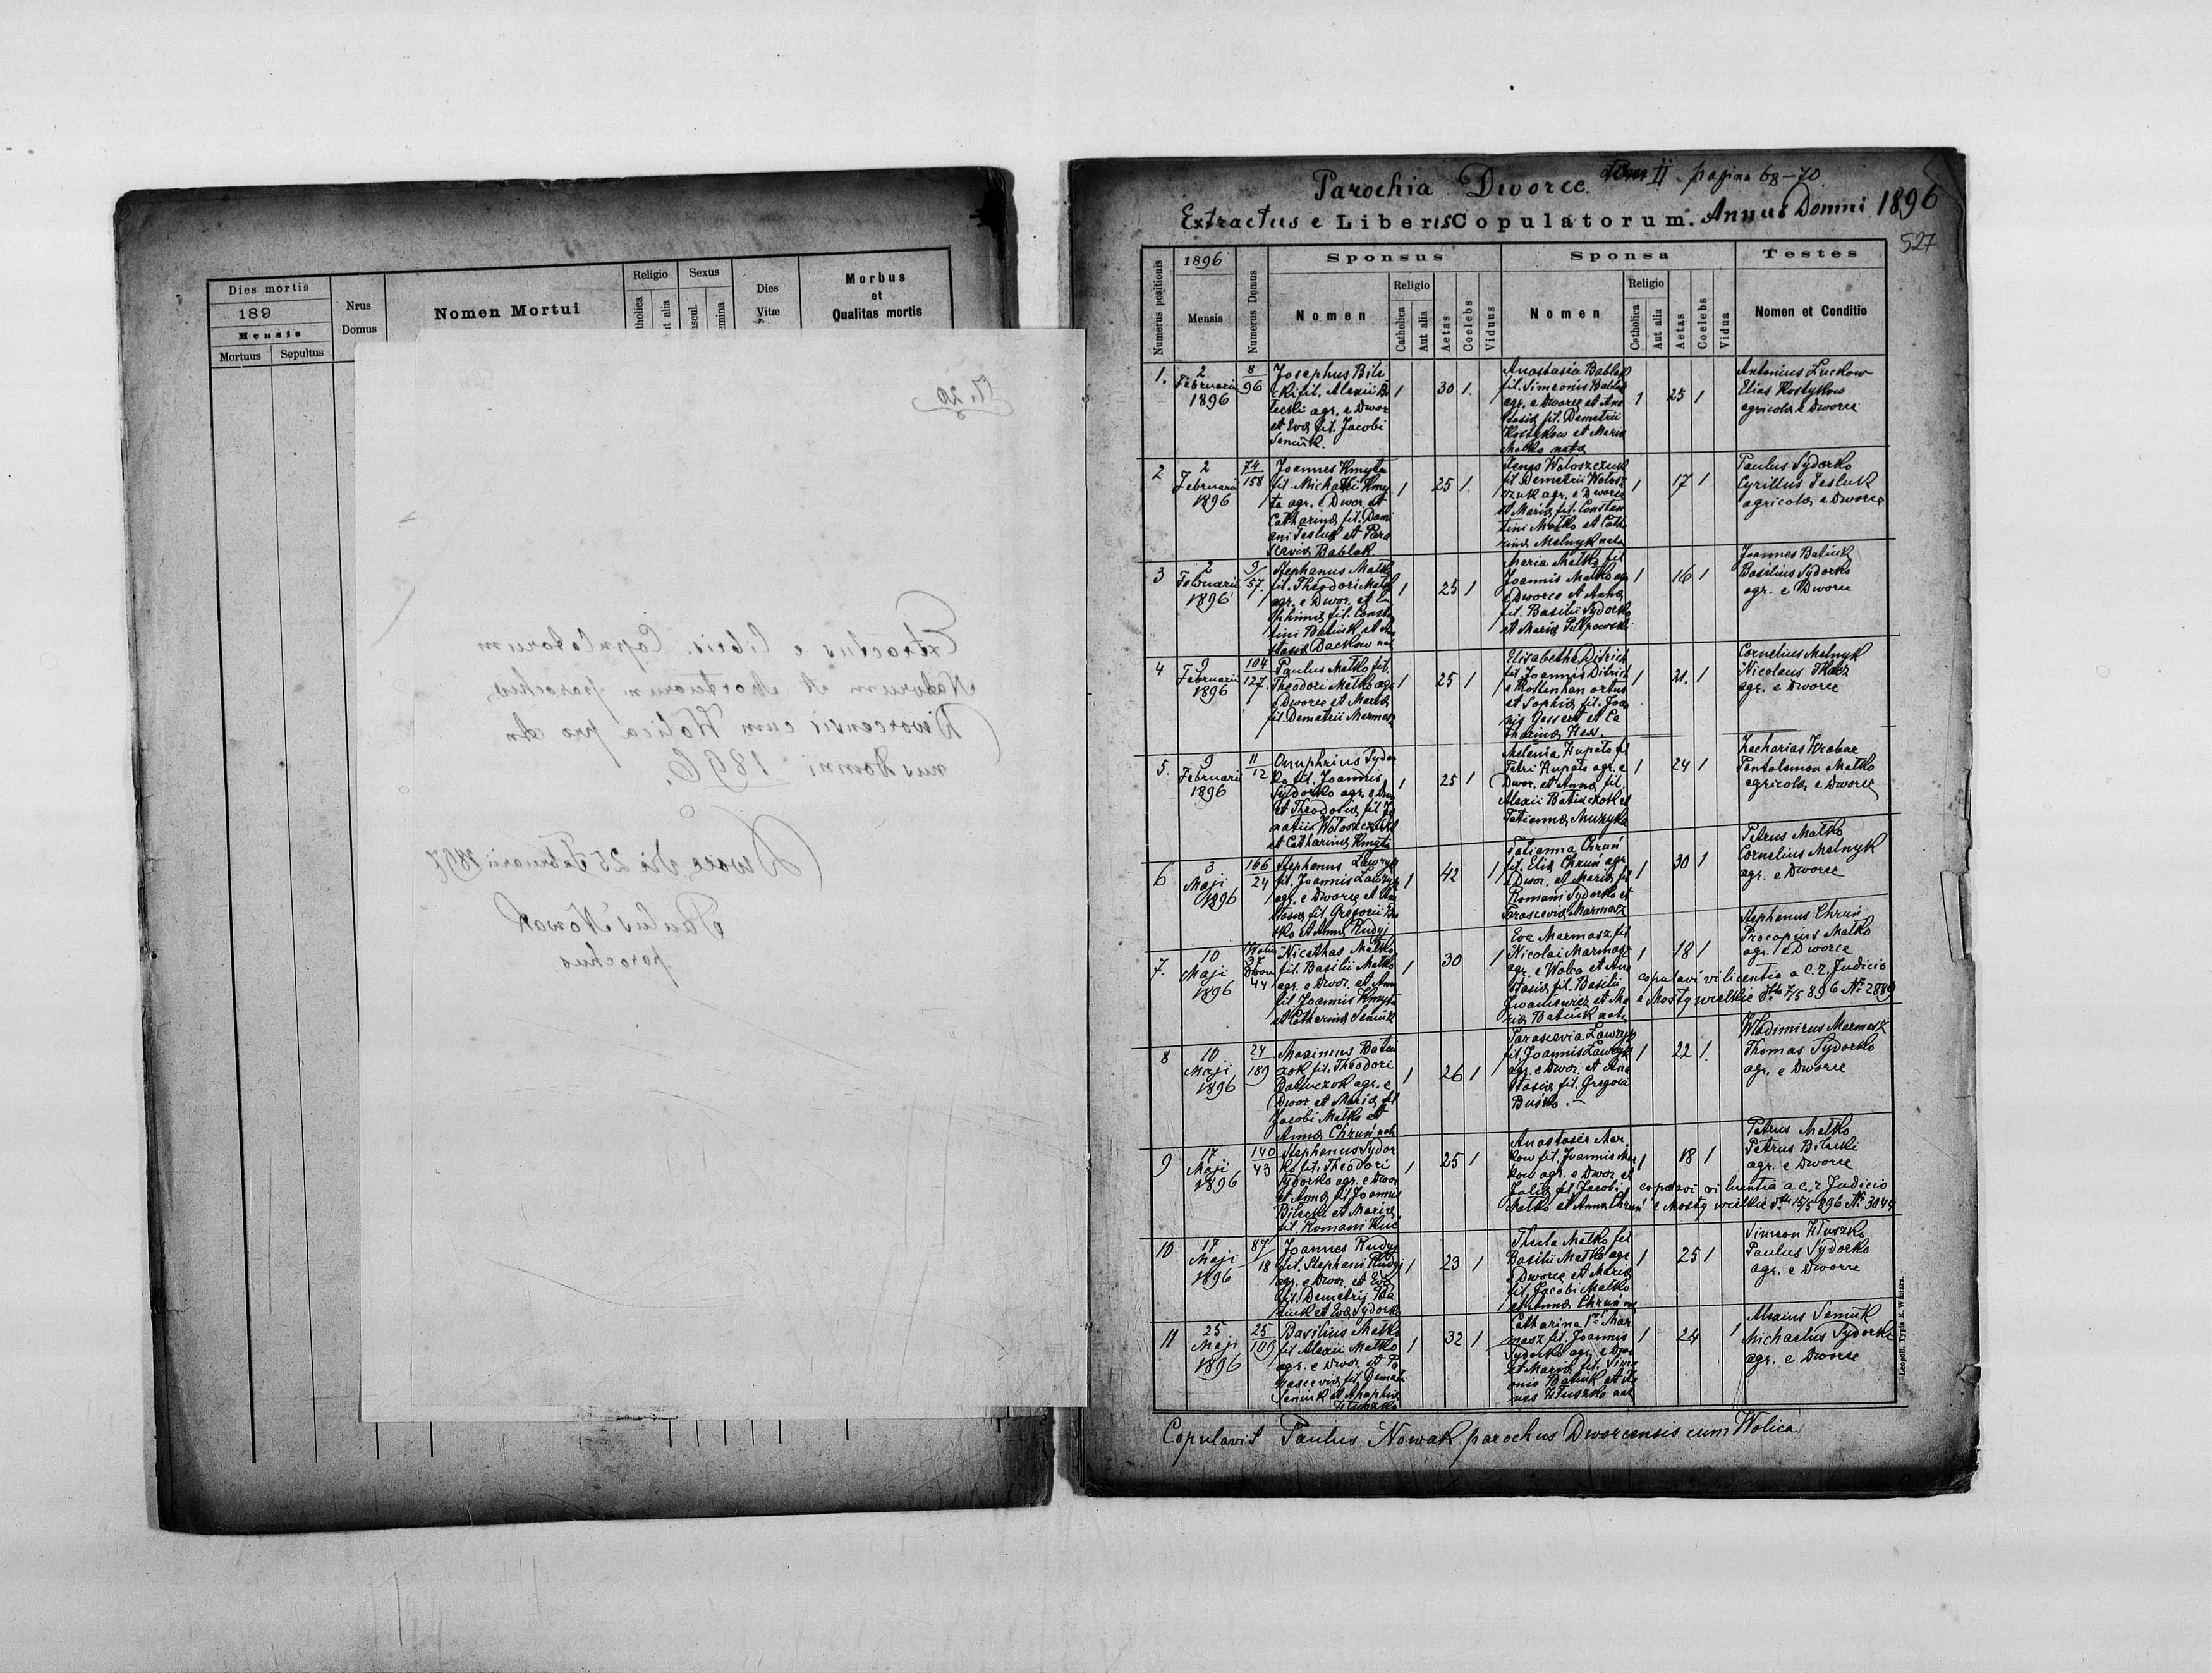 Dies mortis
189
Mensis
Mortuus Sepultus
Nrus
Domus
Nomen Mortui
Religio
Sexus
Dies
Vitæ
Morbus
et
Qualitas mortis
Extractus e libris Copulatorum
Natorum et Mortuorum parochiæ
Dworcensis cum Wolica pro An
nus Domni 1896.
Dworce die 25 Februarii 1897
Paulus Nowak
parochus
Parochia Dworce. tom II pagina 68-70
Extractus e Liberis Copulatorum. Annus Domni 1896
527
Numerus positionis
1896
Mensis
Numerus Domus
Sponsus
Nomen
Religio
Catholica
Aut alia
Aetas
Coelebs
Viduus
Sponsa
Nomen
Religio
Catholica
Aut alia
Aetas
Coelebs
Vidua
Testes
Nomen et Conditio
1.
2
Februarii
1896
8
96
Josephus Bile
cki fil. Alexii Bi
lecki agr. e Dwor
et Eva fil. Jacobi
Seniuk.
1 30 1.
Anastasia Bablak
fil. Simeonis Bablak
agr. e Dworce et Ana
stasia fil. Demetrii
Kostykow et Maria
Matko nata
1 25 1
Antonius Luckow
Elias Kostykow
agricola e Dworce
2
2
Februarii
1896
74
158
Joannes Kmyta
fil. Michaeli Kmy
ta agr. e Dwor. et
Catharina fil. Dami
ani Tesluk et Para
scevia Bablak.
1 25 1.
Woloszczuk
fil. Demetrii Wolosz
czuk agr. e Dworce
et Maria fil. Constan
tini Matko et Catha
rina Melnyk nata
1 17 1
Paulus Sydorko
Cyrillus Tesluk
agricola e Dworce
3
2
Februarii
1896
9
57.
Stephanus Matko
fil. Theodori Matko
agr. e Dwor. et Eu
phimia fil. Constan
tini Batiuk et A
stasia Dackow nat
1 25 1
Maria Matko fil
Joannis Matko agr
e Dworce et Anna
fil. Basilii Sydorko
et Maria
1 16 1
Joannes Batiuk
Basilius Sydorko
agr. e Dworce
4
9
Februarii
1896
104
127.
Paulus Matko fil.
Theodori Matko agr
e Dworce et Maria
fil. Demetrii Marmasz
1 25 1
Elisabetha Ditrich
fil. Joannis Ditrich
e Rottenhan ortus
et Sophia fil. Joan
nis Gessert et Ca
tharina Hess.
1 21. 1
Cornelius Melnyk
Nicolaus Tkacz
agr. e Dworce
5.
9
Februarii
1896
11
12
Onuphrius Sydor
ko fil. Joannis
Sydorko agr. e Dwor
et Theodosia fil Ig
natii Woloszczuk
et Catharina Kmyta
1 25 1
Melania Hupalo fil
Petri Hupalo agr. e
Dwor. et Anna fil.
Alexii Batiuczok et
Tatianna Muzyka
1 24 1
Zacharias Hrabar
Pantalemon Matko
agricola e Dworce
6
3
Maji
1896
166
24
Stephanus Lawryk
fil. Joannis Lawryk
agr. e Dworce et Ana
stasia fil. Gregorii Bu
sko et Anna Rudyj
1 42 1
Tatianna Chruń
fil. Elia Chruń agr.
e Dwor. et Maria fil
Romani Sydorko et
Parascevia Marmasz
1 30 1
Petrus Matko
Cornelius Melnyk
agr. e Dworce
7.
10
Maji
1896
Wolica
37
Dwor
44
Nicethas Matko
fil. Basilii Matko
agr. e Dwor. et Ann
fil Joannis Kmyta
et Catharina Seniuk
1 30 1
Eva Marmasz fil
Nicolai Marmasz
agr. e Wolca et Ana
stasia fil. Basilii
Iwaniewicz et Ma
ria Batiuk nata
1 18 1
Stephanus Chruń
Procopius Matko
agr. e Dworce
copulavi vi licentia a C. r. Judicio
e Mosty wielkie dtto 7/5 896 No 2889
8
10
Maji
1896
24
189
Maximus Batiu
czok fil. Theodori
Batiuczok agr. e
Dwor et Maria fil
Jacobi Matko et
Anna Chruń nata
1 26 1
Parascevia Lawryk
fil. Joannis Lawryk
agr. e Dwor. et Ana
stasia fil. Gregorii
Busko. -
1 22 1.
Wladimirus Marmasz
Thomas Sydorko
agr. e Dworce
9
17
Maji
1896
140
43
Stephanus Sydor
ko fil. Theodori
Sydorko agr. e Dwor
et Anna fil Joannis
Bilecki et Maria
fil. Romani Kuc
1 25 1
Anastasia Mar
kow fil. Joannis Mar
kow agr. e Dwor et
Julia fil Jacobi
Matko et Anna Chruń
1 18 1
Petrus Matko
Petrus Bilecki
agr. e Dworce
copulavi vi licentia a c. r Judicio
e Mosty wielkie dtto 15/5 896 No 3044
10
17
Maji
1896
87
18
Joannes Rudyj
fil. Stephani Rudyj
agr. e Dwor. et Eva
fil. Demetrij Ba
tiuk et Eva Sydorko
1 23 1
Thecla Matko fil
Basilii Matko agr
e Dworce et Maria
fil. Jacobi Matko
et Anna Chruń na
1 25 1
Simeon Hluszko
Paulus Sydorko
agr. e Dworce
11
25
Maji
1896
25
109
Basilius Matko
fil Alexii Matko
agr. e Dwor. et Pa
rascevia fil. Demetri
Seniuk et Agaphia
Hluszko
1 32 1
Catharina Mar
masz fil. Joannis
Sydorko agr. e Dwo
et Maria fil. Sime
onis Batiuk et A
nas Hluszko nat
1 24 1
Alexius Seniuk
Michaelus Sydorko
agr. e Dworce
Leopoli. Typis E. Winiarz.
Copulavit Paulus Nowak parochus Dworcensis cum Wolica